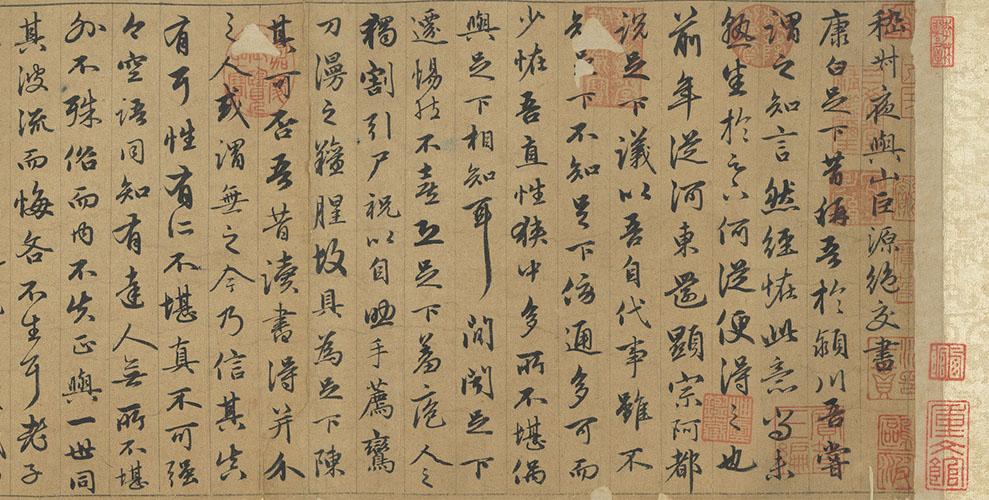 嵇叔夜與山巨源絕交書
康白足下昔稱吾於潁川吾嘗
謂之知言然經怪此意尚未
熟生於足下何從便得之也
前年從河東還顯宗阿都
說足下議以吾自代事雖不
知足下不知足下傍通多可而
少怪吾直性狹中多所不堪偶
與足下相知耳間聞足下
遷惕然不喜恐足下羞庖人之
獨割引尸祝以自助手薦鸞
刀漫之羶腥故具為足下陳
其可否吾昔讀書得并介
之人或謂無之今乃信其真
有耳性有仁不堪真不可強
今空語同知有達人無所不堪
外不殊俗而內不失正與一世同
其波流而悔吝不生耳老子